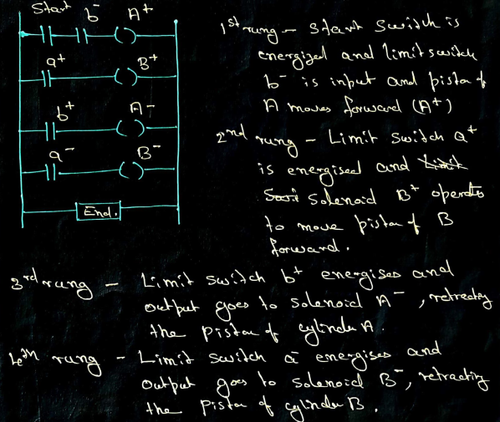 Start b⁻ A⁺
a⁺ B⁺
b⁺ A⁻
a⁻ B⁻
End.
1st rung - Start Switch is
energized and limit switch
b⁻ is input and piston of
A moves forward (A⁺)
2nd rung - Limit Switch a⁺
is energised and Limit
Solenoid B⁺ operates
to move piston of B
forward.
3rd rung - Limit Switch b⁺ energises and
output goes to Solenoid A⁻, retracting
the piston of cylinder A.
4th rung - Limit Switch a⁻ energises and
output goes to solenoid B⁻, retracting
the piston of cylinder B.